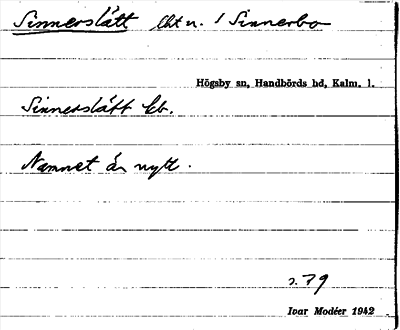 Sinnerslätt lht n. / Sinnerbo
Högsby sn, Handbörds hd, Kalm. l.
Sinnerslätt kb.
Namnet är nytt.
s. 79
Ivar Modéer 1942